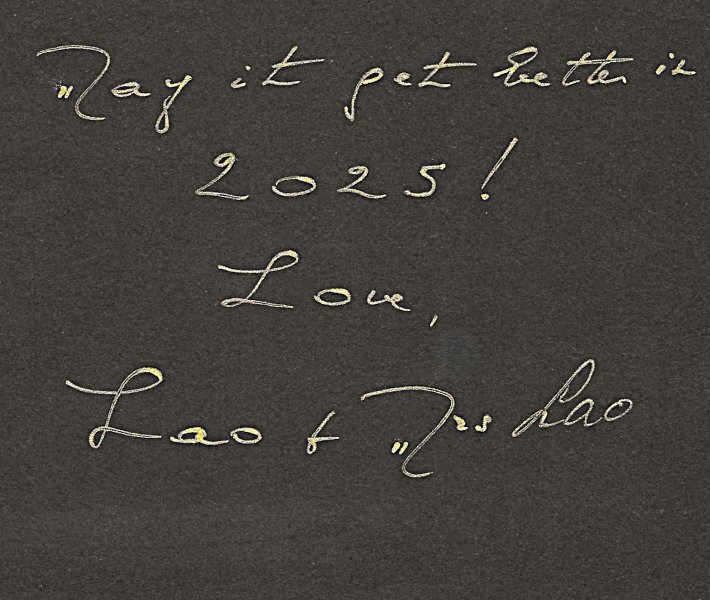 May it get better in
2025!
Love,
Lao & Mrs Lao